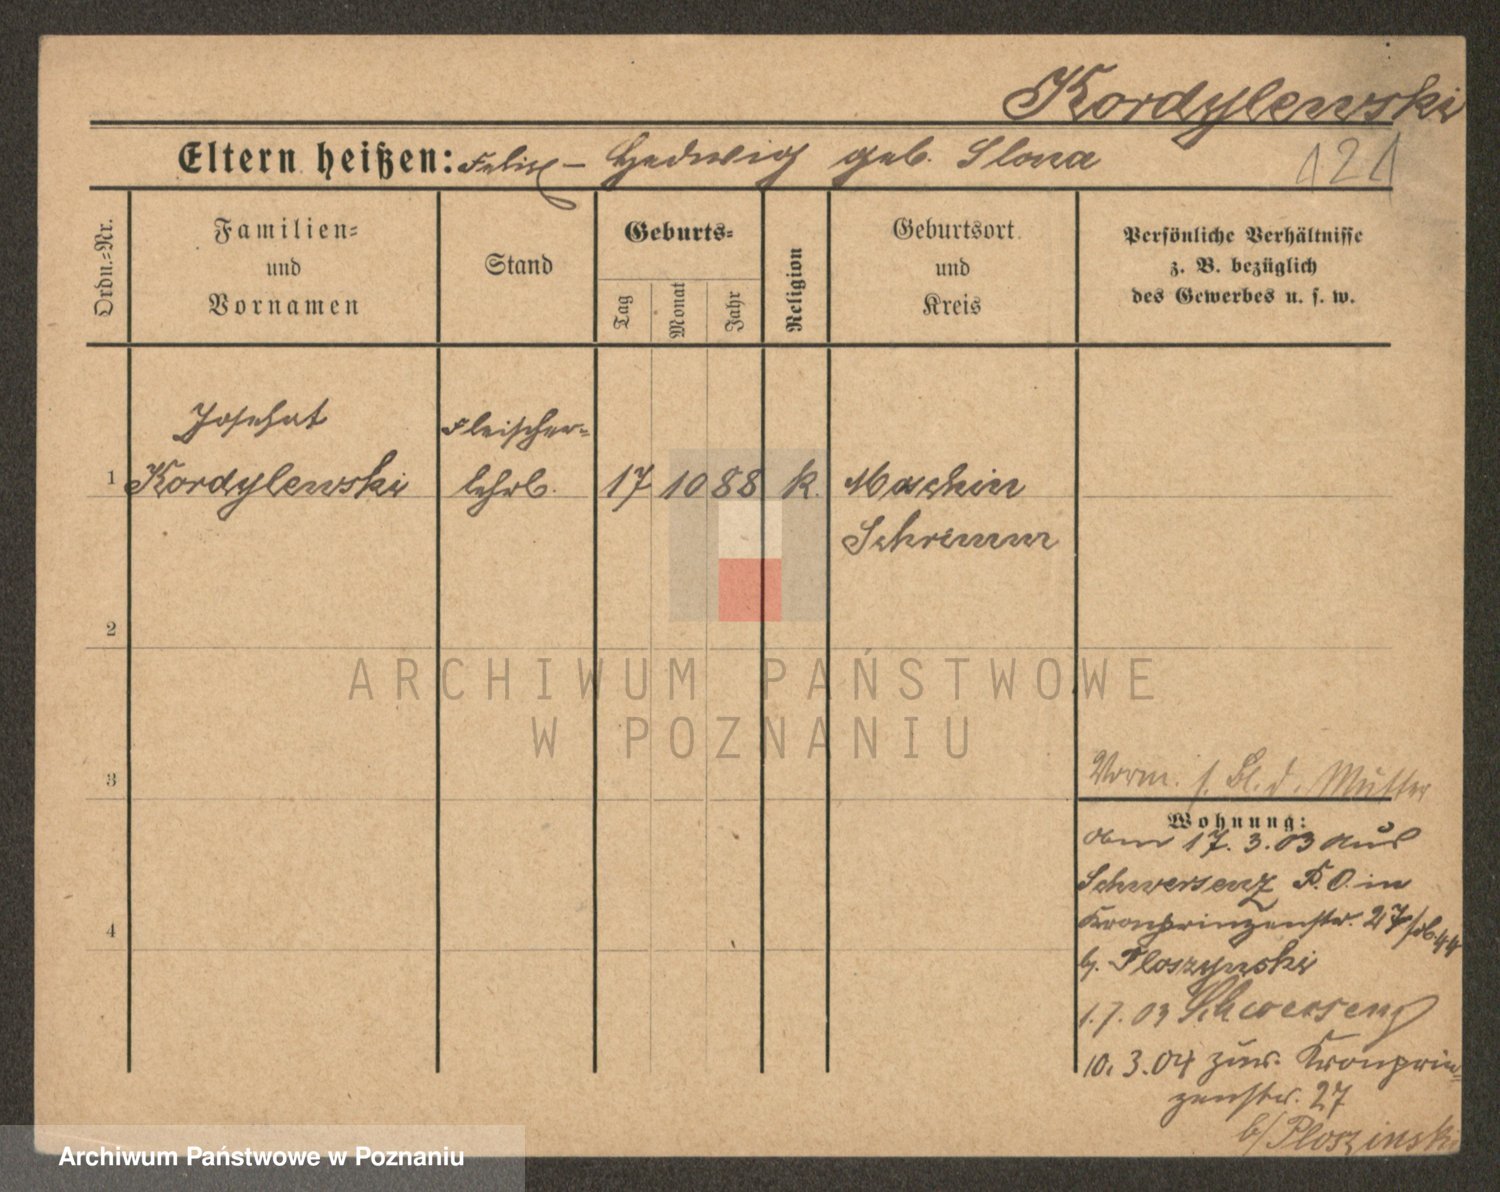 Kordylewski
Eltern heißen: Felix – Hedwig geb. Slona
121
Ordn.=Nr.
Familien=
und
Vornamen
Stand
Geburts=
Tag
Monat
Jahr
Religion
Geburtsort
und
Kreis
Persönliche Verhältnisse
z. B. bezüglich
des Gewerbes u. s. w.
Josefat
Fleischer=
1 Kordylewski lehrl. 17 10 88 k. Machin
Schrimm
2
ARCHIWUM PAŃSTWOWE
W POZNANIU
3
Vorm. s. Bl. d. Mutter
Wohnung:
17. 3. 03 aus
Schwersenz P. O. in
Kronprinzenstr. 27
b. Ploszynski
4
1. 7. 03 Schwersenz
10. 3. 04 zur. Kronprin=
zenstr. 27
b/ Ploszinski
Archiwum Państwowe w Poznaniu